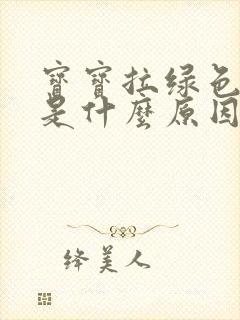 寶寶拉綠色
是什麼原因
绛美人